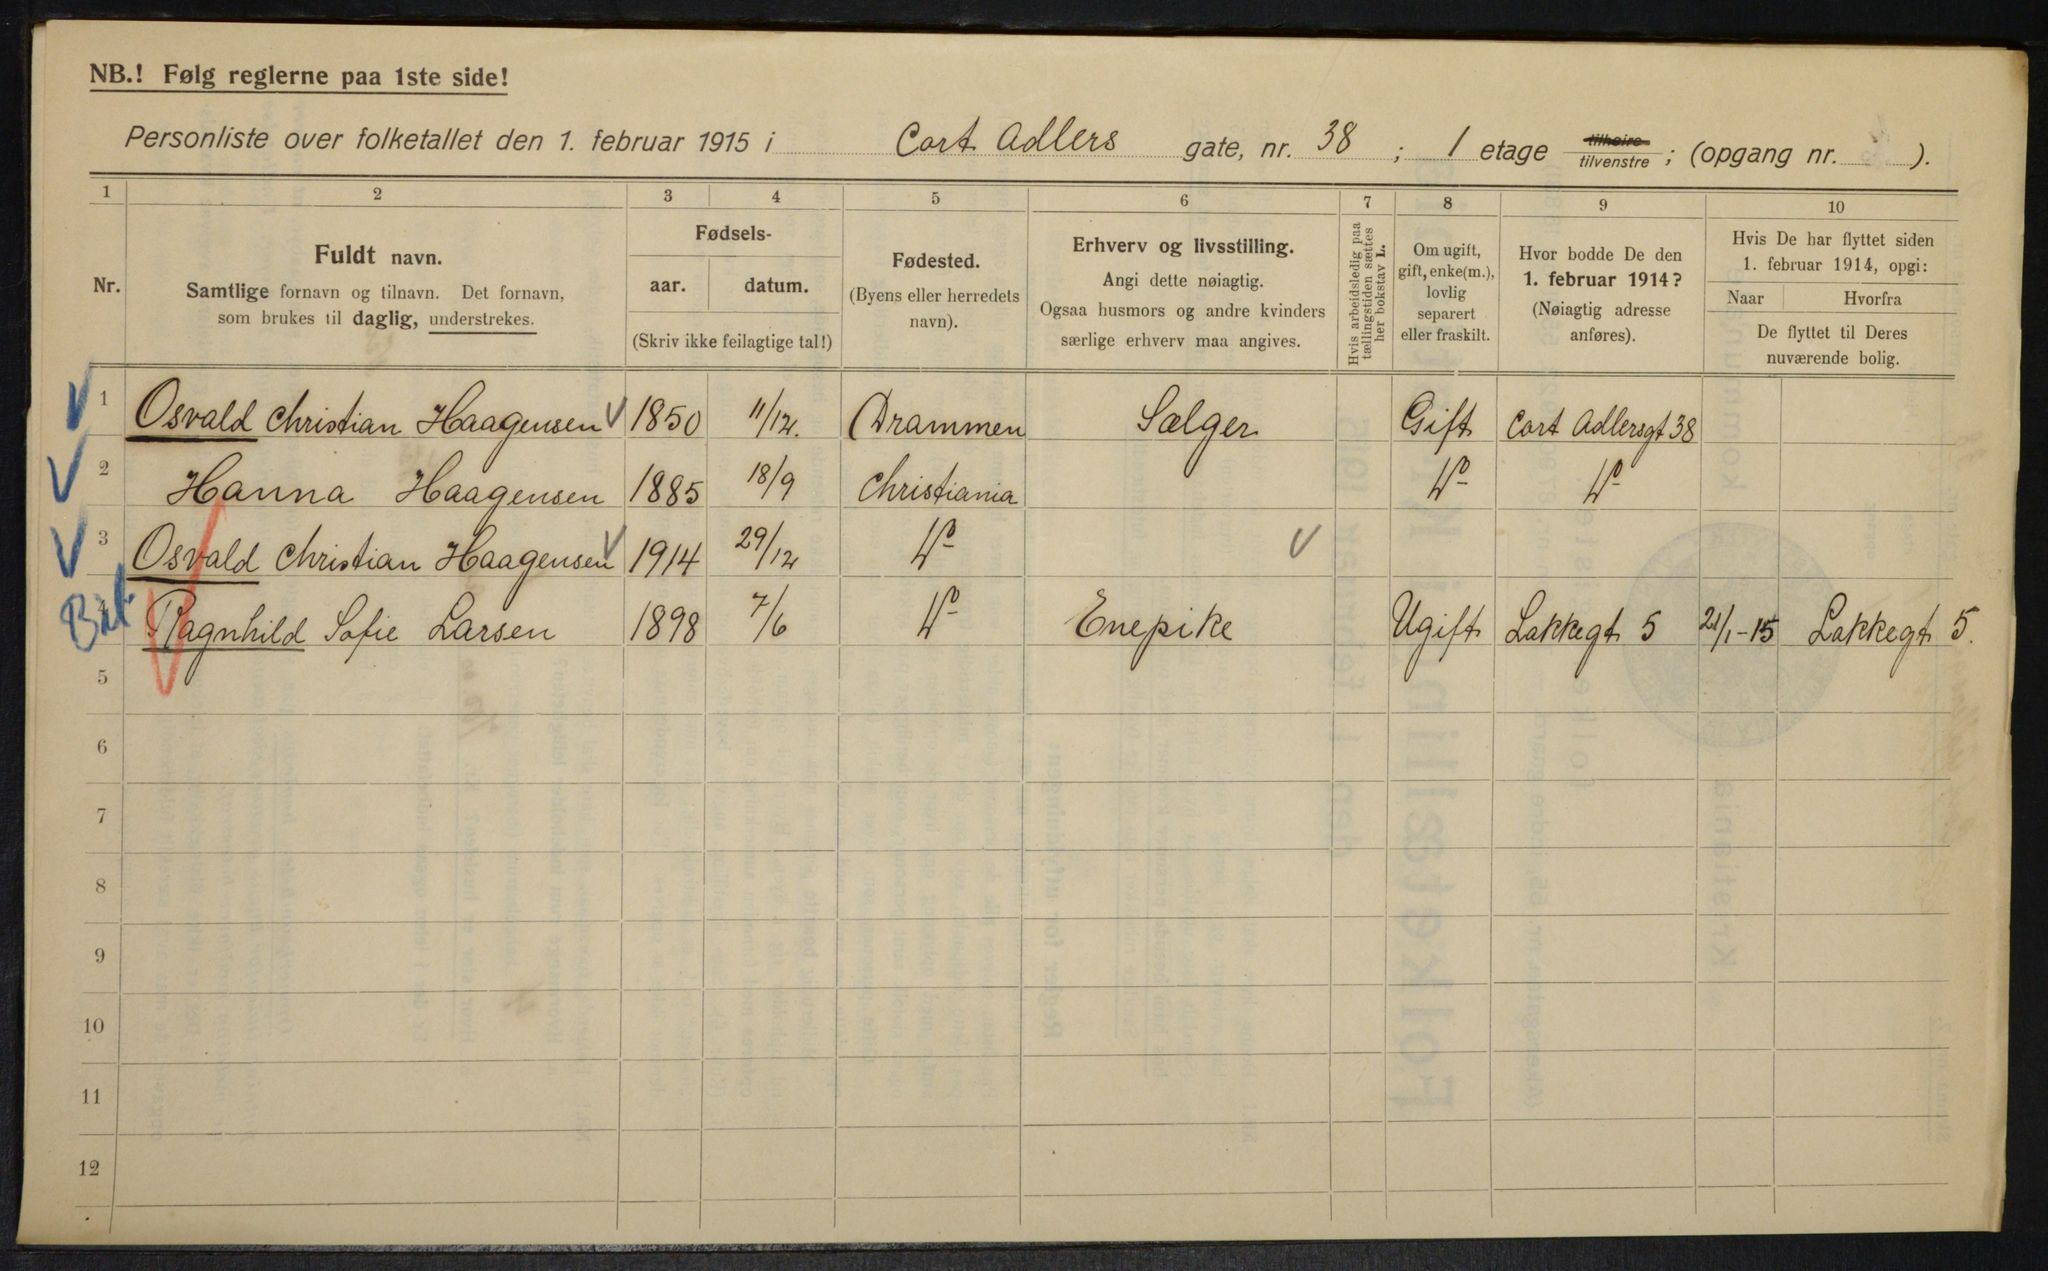 NB.! Følg reglerne paa 1ste side!
Personliste over folketallet den 1. februar 1915 i Cort Adlers gate, nr. 38 ; 1 etage tilhøire tilvenstre ; (opgang nr. ).
1 2 3 4 5 6 7 8 9 10
Nr.
Fuldt navn.
Samtlige fornavn og tilnavn. Det fornavn,
som brukes til daglig, understrekes.
Fødsels-
aar. datum.
(Skriv ikke feilagtige tal!)
Fødested.
(Byens eller herredets
navn).
Erhverv og livsstilling.
Angi dette nøiagtig.
Ogsaa husmors og andre kvinders
særlige erhverv maa angives.
Hvis arbeidsledig paa
tællingstiden sættes
her bokstav L.
Om ugift,
gift, enke(m.),
lovlig
separert
eller fraskilt.
Hvor bodde De den
1. februar 1914?
(Nøiagtig adresse
anføres).
Hvis De har flyttet siden
1. februar 1914, opgi:
Naar Hvorfra
De flyttet til Deres
nuværende bolig.
1 Osvald Christian Haagensen 1850 11/12. Drammen Sælger Gift Cort Adlersgt 38
2 Hanna Haagensen 1885 18/9 Christiania Do Do
3 Osvald Christian Haagensen 1914 29/12 Do
4 Ragnhild Sofie Larsen 1898 7/6 Do Enepike Ugift Lakkegt 5 21/1-15 Lakkegt 5.
5
6
7
8
9
10
11
12